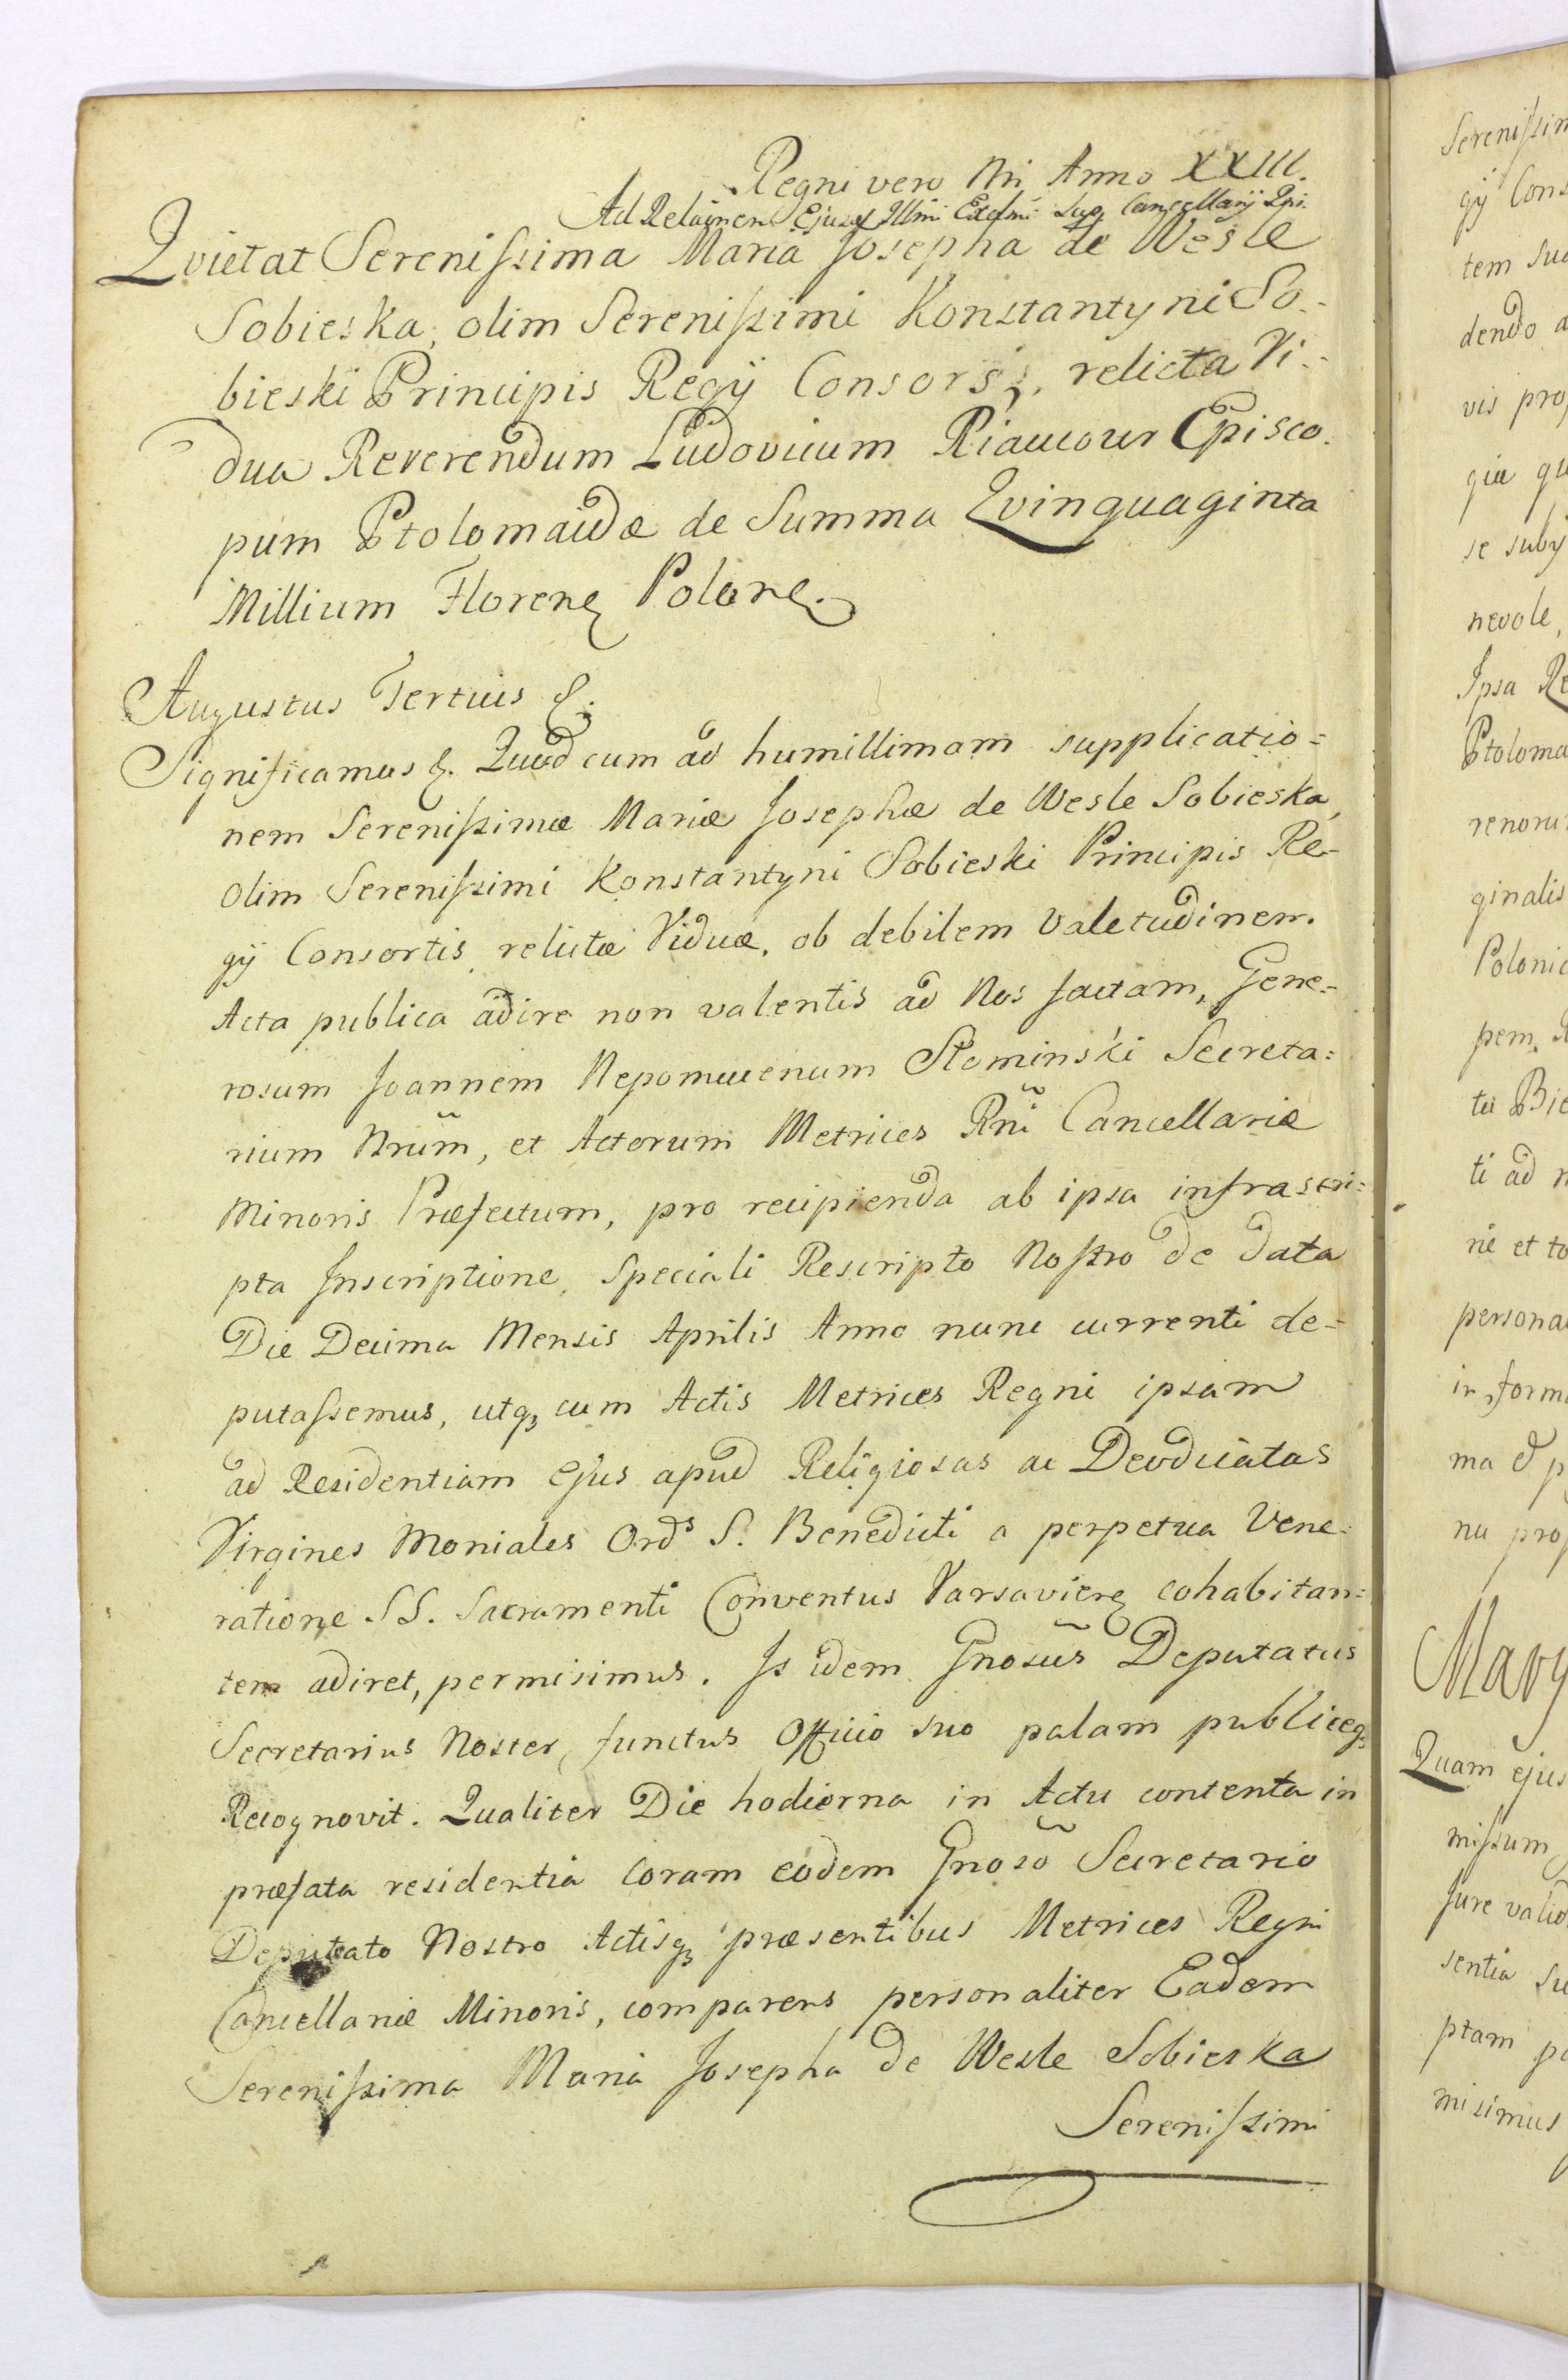 Regni vero Nri Anno XXIII.
Ad Relaõnem Ejusd Illmi Exclmi Sup. Cancellarij Rni.
Qvietat Serenissima Maria Josepha de Wesle
Sobieska, olim Serenissimi Konstantyni So-
bieski Principis Regÿ Consors, relicta Vi-
dua Reverendum Ludovicum Riaucour Episco-
pum Ptolomaidæ de Summa Qvinquaginta
Millium Florenę Polonę.
Augustus Tertius &.
Significamus &. Quod cum ad humillimam supplicatio=
nem Serenissimæ Mariæ Josephæ de Wesle Sobieska,
olim Serenissimi Konstantyni Sobieski Principis Re-
gÿ Consortis, relictæ Viduæ, ob debilem valetudinem
Acta publica adire non valentis ad Nos factam, Gene=
rosum Joannem Nepomucenum Słominski Secreta=
rium Nrum̃, et Actorum Metrices Rni̅ Cancellariæ
Minoris Præfectum, pro recipienda ab ipsa infrascri=
pta Inscriptione, speciali Rescripto Nostro de data
Die Decima Mensis Aprilis Anno nunc currenti de=
putassemus, utqꝫ cum Actis Metrices Regni ipsam
ad Residentiam ejus apud Religiosas ac Deodicatas
Virgines Moniales Ords S. Benedicti a perpetua Vene=
ratione SS. Sacramenti Conventus Varsavienę cohabitan=
tem adiret, permisimus. Is idem Gnosus̃ Deputatus
Secretarius Noster, functus Officio suo palam publiceqꝫ
Recognovit. Qualiter Die hodierna in Actu contenta in
præfata residentia coram eodem Gnoso̅ Secretario
Deputato Nostro Actisqꝫ præsentibus Metrices Regni
Cancellariæ Minoris, comparens personaliter Eadem
Serenissima Maria Josepha de Wesle Sobieska
Serenissimi
Serenissim
gÿ Cons
tem sua
dendo a
vis prop
giæ qu
se subÿ
nevole,
Ipsa Re
Ptoloma
renoru
ginalis
Polonic
pem.
ta Bie
ti ad n
rie et to
persona
in forma
ma & p
na prop
Mary
Quam ejus
missum
Jure valid
sentia su
ptam pe
misimus